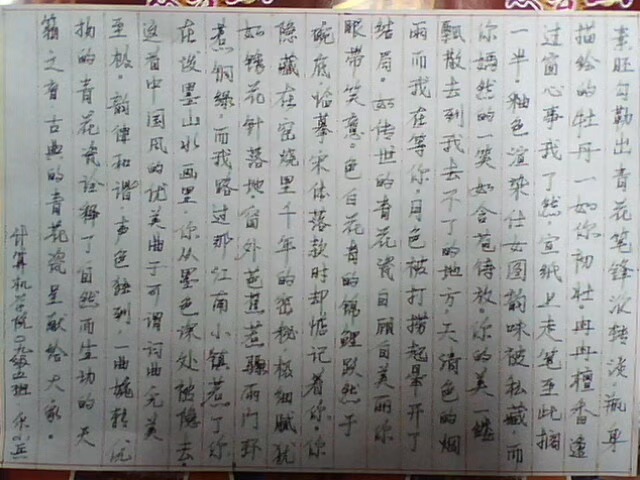 素胚勾勒出青花笔锋浓转淡·瓶身
描绘的牡丹一如你初妆·冉冉檀香透
过窗心事我了然宣纸上走笔至此搁
一半·釉色渲染仕女图韵味被私藏而
你嫣然的一笑如含苞待放·你的美一缕
飘散去到我去不了的地方·天清色的烟
雨而我在等你·月色被打捞起晕开了
结局·如传世的青花瓷自顾自美丽你
眼带笑意·色白花青的锦鲤跃然于
碗底临摹宋体落款时却惦记着你·你
隐藏在窑烧里千年的秘密极细腻犹
如绣花针落地·窗外芭蕉惹骤雨门环
惹铜绿·而我路过那江南小镇惹了你
在泼墨山水画里·你从墨色深处被隐去·
这首中国风的优美曲子可谓词曲完美
至极·韵律和谐·声色独到·一曲婉转
扬的青花瓷诠释了自然而生动的天
籁之音古典的青花瓷呈献给大家·
计算机学院09级五班